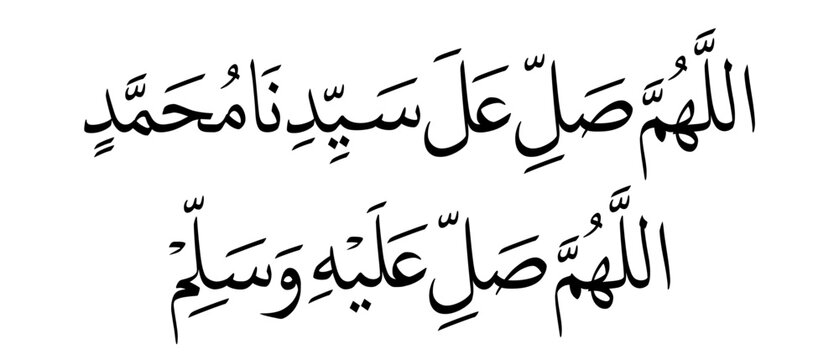 اللَّهُمَّ صَلِّ عَلَ سَيِّدِنَا مُحَمَّدٍ
اللَّهُمَّ صَلِّ عَلَيْهِ وَسَلِّمْ